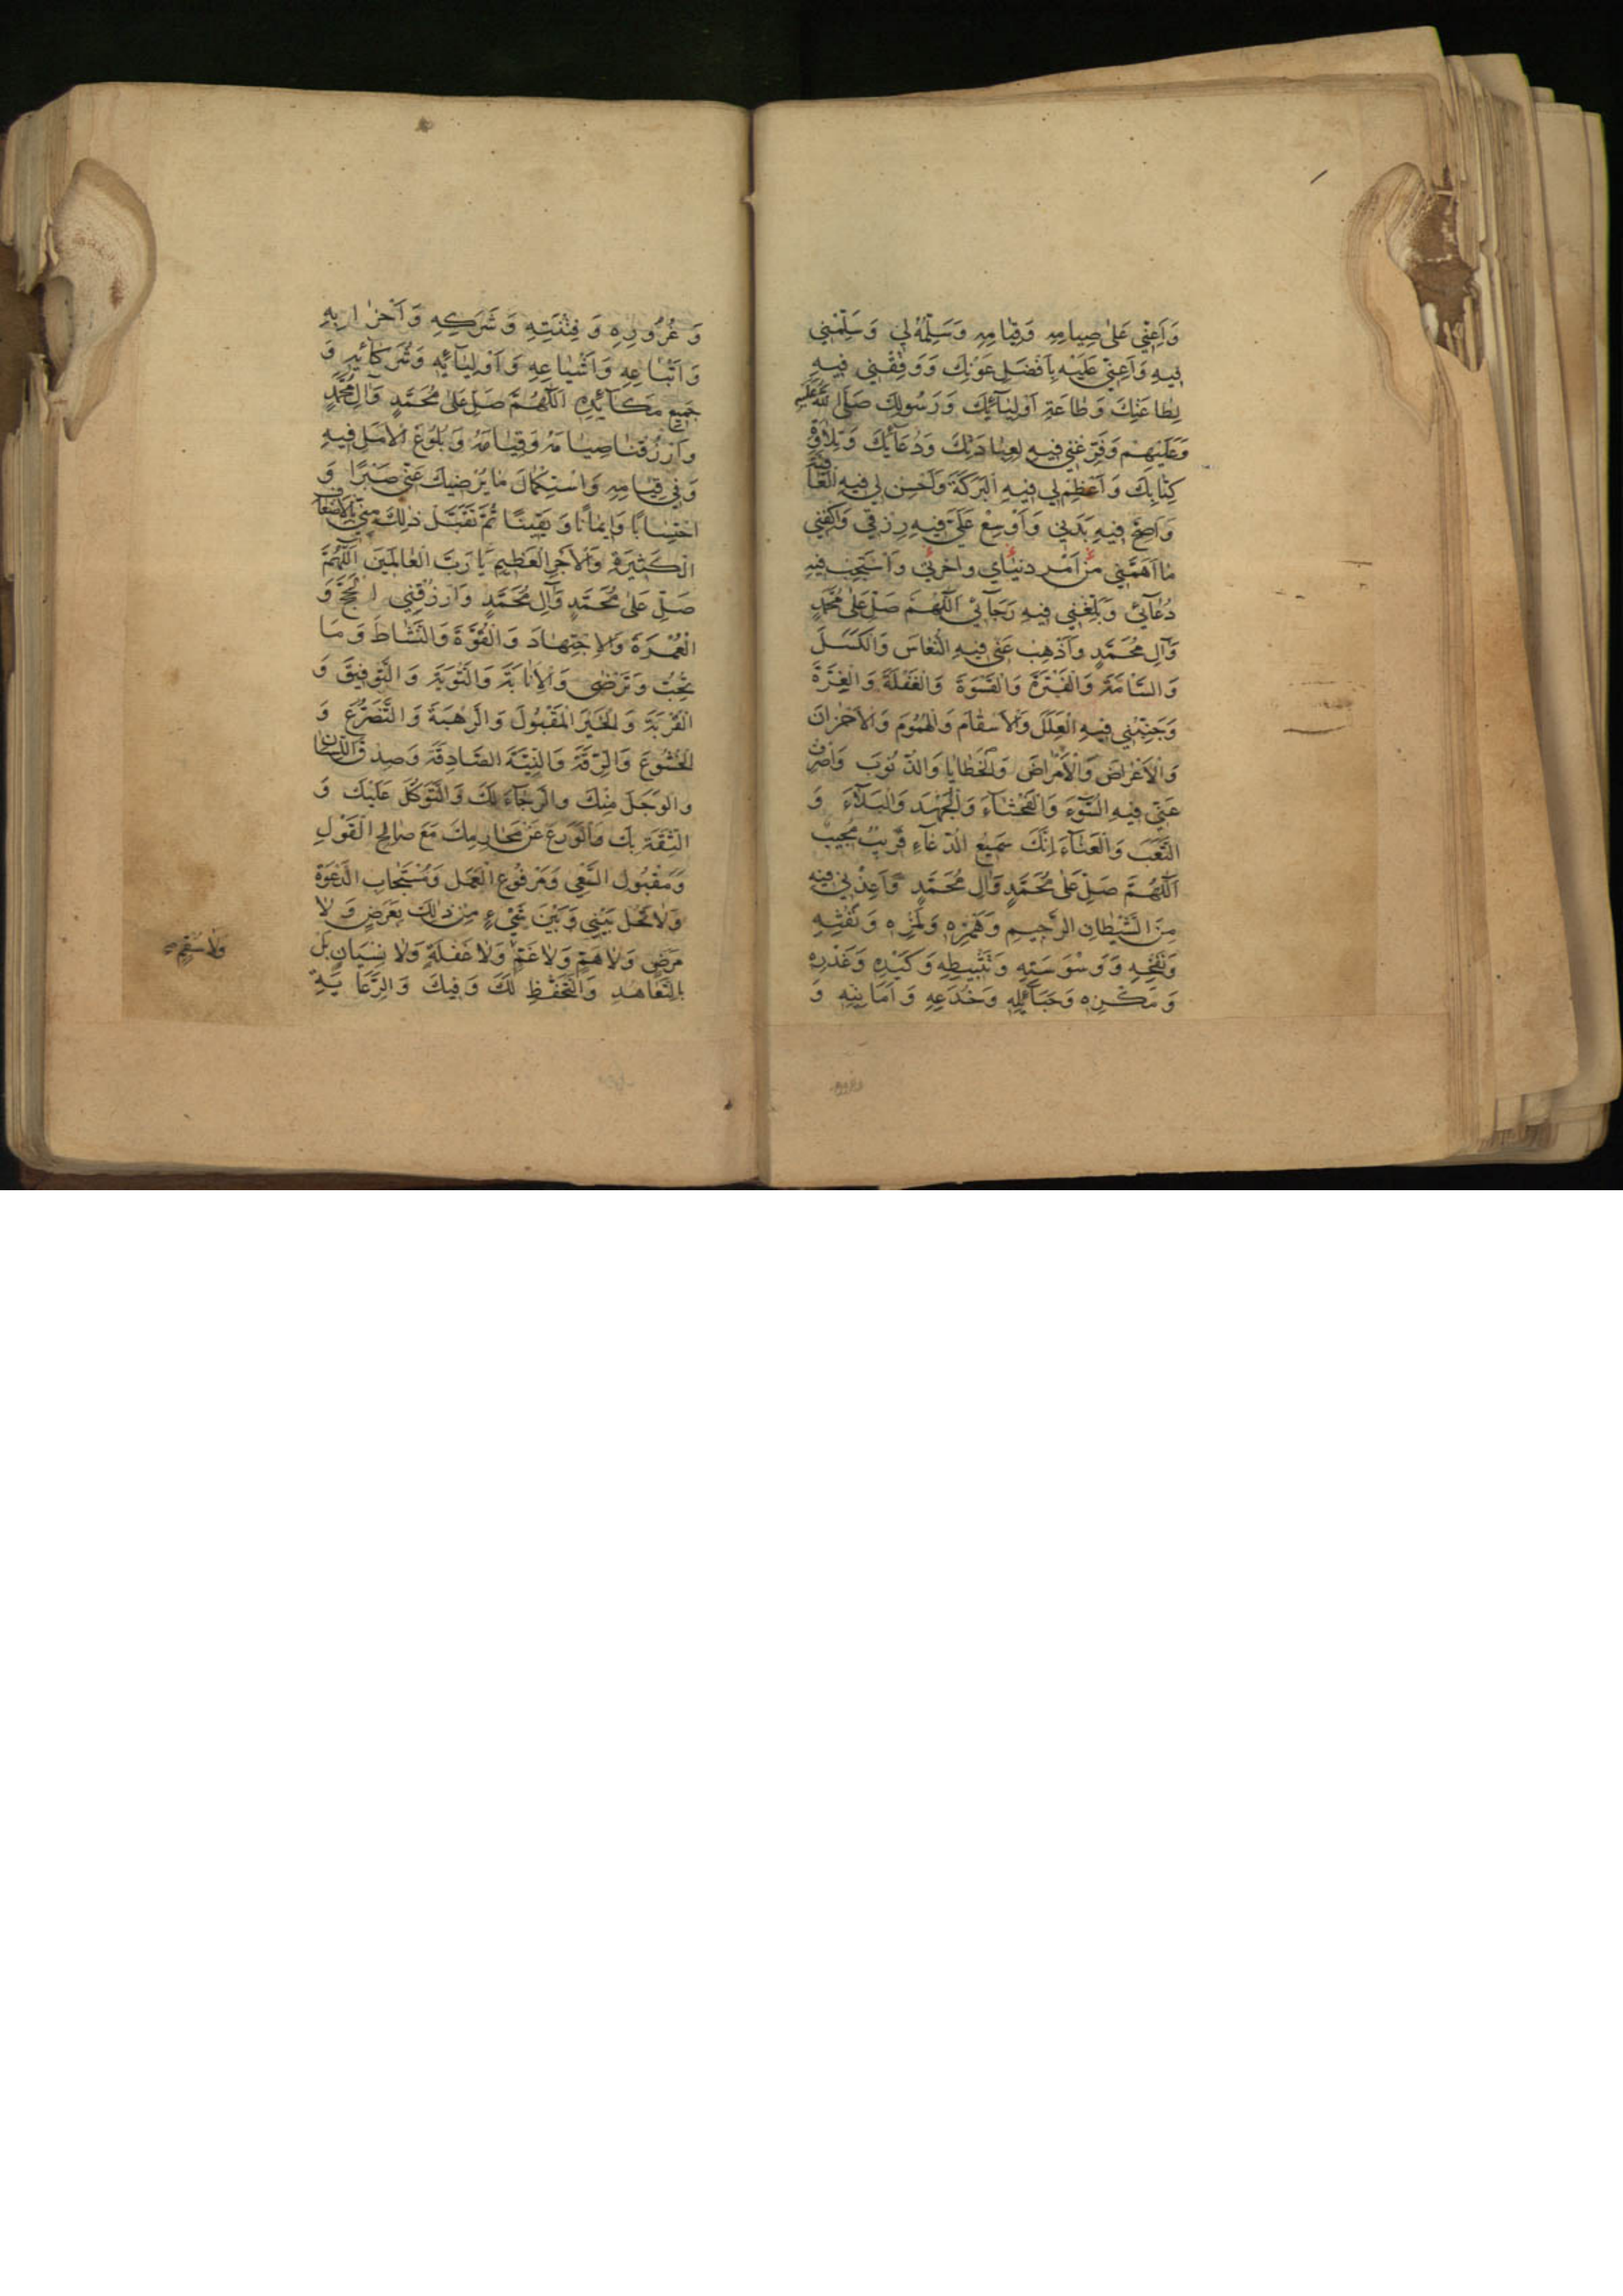 وَاَعِنّي عَلىٰ صِيامِهِ وَقِيامِهِ وَسَلِّمْهُ لي وَسَلِّمْني
فيهِ وَاَعِنّي عَلَيْهِ بِاَفْضَلِ عَوْنِكَ وَوَفِّقْني فيهِ
لِطاعَتِكَ وَطاعَةِ اَوْلِيآئِكَ وَرَسُولِكَ صَلَّى اللهُ عَلَيْهِ
وَعَلَيْهِمْ وَفَرِّغْني فيهِ لِعِبادَتِكَ وَدُعآئِكَ وَتِلاوَةِ
كِتابِكَ وَاَعْظِمْ لي فيهِ الْبَرَكَةَ وَاَحْسِنْ لي فيهِ الْعافِيَةَ
وَاَصِحَّ فيهِ بَدَني وَاَوْسِعْ عَلَيَّ فيهِ رِزْقي وَاكْفِني
ما اَهَمَّني مِنْ اَمْرِ دُنْيايَ وَاخِرَتي وَاسْتَجِبْ فيهِ
دُعآئي وَبَلِّغْني فيهِ رَجآئي اَللّهُمَّ صَلِّ عَلىٰ مُحَمَّدٍ
وَآلِ مُحَمَّدٍ وَاَذْهِبْ عَنّي فيهِ النُّعاسَ وَالْكَسَلَ
وَالسَّامَةَ وَالْفَتْرَةَ وَالْقَسْوَةَ وَالْغَفْلَةَ وَالْغِرَّةَ
وَجَنِّبْني فيهِ الْعِلَلَ وَالْاَسْقامَ وَالْهُمُومَ وَالْاَحْزانَ
وَالْاَعْراضَ وَالْاَمْراضَ وَالْخَطايا وَالذُّنُوبَ وَاصْرِفْ
عَنّي فيهِ السُّوٓءَ وَالْفَحْشآءَ وَالْجَهْدَ وَالْبَلآءَ وَ
التَّعَبَ وَالْعَنآءَ اِنَّكَ سَميعُ الدُّعآءِ قَريبٌ مُجيبٌ
اَللّهُمَّ صَلِّ عَلىٰ مُحَمَّدٍ وَآلِ مُحَمَّدٍ وَاَعِذْني فيهِ
مِنَ الشَّيْطانِ الرَّجيمِ وَهَمْزِهِ وَلَمْزِهِ وَنَفْثِهِ
وَنَفْخِهِ وَوَسْوَسَتِهِ وَتَثْبيطِهِ وَكَيْدِهِ وَغَدْرِهِ
وَمَكْرِهِ وَحَبآئِلِهِ وَخُدَعِهِ وَاَمانِيِّهِ وَ
وَغُرُورِهِ وَفِتْنَتِهِ وَشَرَكِهِ وَاَحْزابِهِ
وَاَتْباعِهِ وَاَشْياعِهِ وَاَوْلِيآئِهِ وَشُرَكآئِهِ وَ
جَميعِ مَكآئِدِهِ اَللّهُمَّ صَلِّ عَلىٰ مُحَمَّدٍ وَآلِ مُحَمَّدٍ
وَارْزُقْنا صِيامَهُ وَقِيامَهُ وَبُلُوغَ الْاَمَلِ فيهِ
وَفي قِيامِهِ وَاسْتِكْمالَ ما يُرْضيكَ عَنّي صَبْرًا وَ
احْتِسابًا وَايمانًا وَيَقينًا ثُمَّ تَقَبَّلْ ذلِكَ مِنّي بِالْاَضْعافِ
الْكَثيرَةِ وَالْاَجْرِ الْعَظيمِ يا رَبَّ الْعالَمينَ اَللّهُمَّ
صَلِّ عَلىٰ مُحَمَّدٍ وَآلِ مُحَمَّدٍ وَارْزُقْني الْحَجَّ وَ
الْعُمْرَةَ وَالْاِجْتِهادَ وَالْقُوَّةَ وَالنَّشاطَ وَمَا
تُحِبُّ وَتَرْضىٰ وَالْاِنابَةَ وَالتَّوْبَةَ وَالتَّوْفيقَ وَ
الْقُرْبَةَ وَالْخَيْرَ الْمَقْبُولَ وَالرَّهْبَةَ وَالتَّضَرُّعَ وَ
الْخُشُوعَ وَالرِّقَّةَ وَالنِّيَّةَ الصّادِقَةَ وَصِدْقَ اللِّسانِ
وَالْوَجَلَ مِنْكَ وَالرَّجآءَ لَكَ وَالتَّوَكُّلَ عَلَيْكَ وَ
الثِّقَةَ بِكَ وَالْوَرَعَ عَنْ مَحارِمِكَ مَعَ صالِحِ الْقَوْلِ
وَمَقْبُولِ السَّعْي وَمَرْفُوعِ الْعَمَلِ وَمُسْتَجابِ الدَّعْوَةِ
وَلا تَحُلْ بَيْني وَبَيْنَ شَيْءٍ مِنْ ذلِكَ بِعَرَضٍ وَلا
مَرَضٍ وَلا هَمٍّ وَلا غَمٍّ وَلا غَفْلَةٍ وَلا نِسْيانٍ بَلْ
بِالتَّعاهُدِ وَالتَّحَفُّظِ لَكَ وَفيكَ وَالرِّعايَةِ
وَلا سُقْمٍ